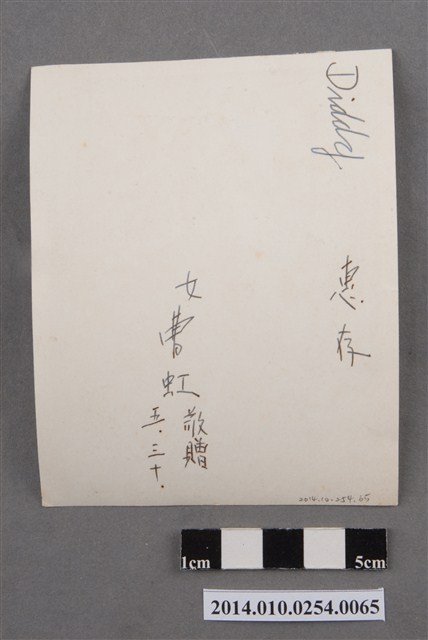 Diddy
惠存
女曹虹敬贈
五.三十.
2014.10.254.65
1cm
5cm
2014.010.0254.0065